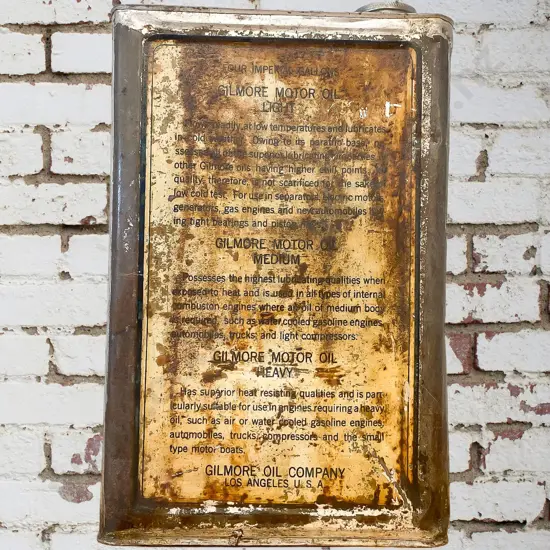 FOUR IMPERIAL GALLONS
GILMORE MOTOR OIL
LIGHT
at low temperatures and lubricates
in cold Owing to its paraffin base,
superior lubricating
other Gilmore oils having higher chill points,
quality, therefore, is not scarificed for the sake
low cold test. For use in separators, electric motors,
generators, gas engines and new automobiles
ing tight bearings and piston
GILMORE MOTOR OIL
MEDIUM
Possesses the highest lubricating qualities when
exposed to heat and is used in all types of internal
combustion engines where an oil of medium body
is required, such as water cooled gasoline engines,
automobiles, trucks, and light compressors.
GILMORE MOTOR OIL
HEAVY
Has superior heat resisting qualities and is par-
ticularly suitable for use in engines requiring a heavy
oil, such as air or water cooled gasoline engines,
automobiles, trucks, compressors and the small
type motor boats.
GILMORE OIL COMPANY
LOS ANGELES, U. S. A.